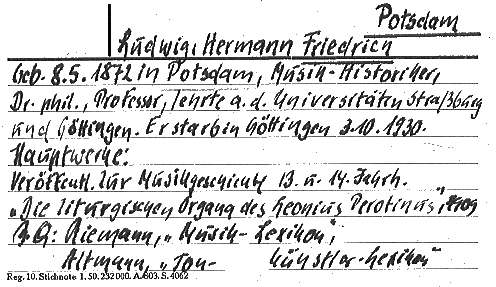 Potsdam
Ludwig, Hermann Friedrich
Geb. 8.5.1872 in Potsdam, Musik-Historiker,
Dr. phil., Professor, lehrte a. d. Universitäten Straßburg
und Göttingen. Er starb in Göttingen 3.10.1930.
Hauptwerke:
Veröffentl. zur Musikgeschichte 13. u. 14. Jahrh.
„Die liturgischen Organa des Leonius Perotinus",
Riemann, „Musik-Lexikon",
Altmann, „Ton- künstler-Lexikon"
Reg. 10. Stichnote 1. 50. 232000. A. 603. S. 4062